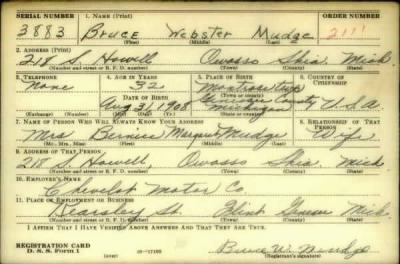 SERIAL NUMBER 1. NAME (Print) ORDER NUMBER
3883 Bruce Webster Mudge 2111
(First) (Middle) (Last)
2. ADDRESS (Print)
218 S. Howell Owosso Shia. Mich
(Number and street or R. F. D. number) (Town) (County) (State)
3. TELEPHONE 4. AGE IN YEARS 5. PLACE OF BIRTH 6. COUNTRY OF CITIZENSHIP
None 32 Montrose twp
DATE OF BIRTH (Town or county)
Aug 31 1908 Genesee County U.S.A
Michigan
(Exchange) (Number) (Mo.) (Day) (Yr.) (State or country)
7. NAME OF PERSON WHO WILL ALWAYS KNOW YOUR ADDRESS 8. RELATIONSHIP OF THAT PERSON
Mrs Bernice Marguerite Mudge Wife
(Mr., Mrs., Miss) (First) (Middle) (Last)
9. ADDRESS OF THAT PERSON
218 S. Howell Owosso Shia Mich
(Number and street or R. F. D. number) (Town) (County) (State)
10. EMPLOYER'S NAME
Chevolet Motor Co
11. PLACE OF EMPLOYMENT OR BUSINESS
Kearsley St. Flint Genesee Mich.
(Number and street or R. F. D. number) (Town) (County) (State)
I AFFIRM THAT I HAVE VERIFIED ABOVE ANSWERS AND THAT THEY ARE TRUE.
REGISTRATION CARD
D. S. S. Form 1 (over) 16—17105 Bruce W. Mudge
(Registrant's signature)